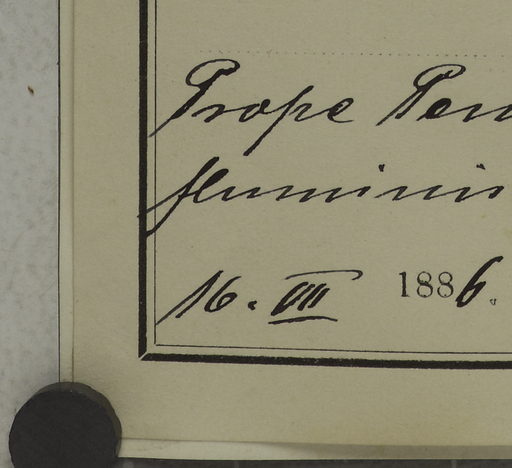 Prope
fluminis
16. VII 1886.